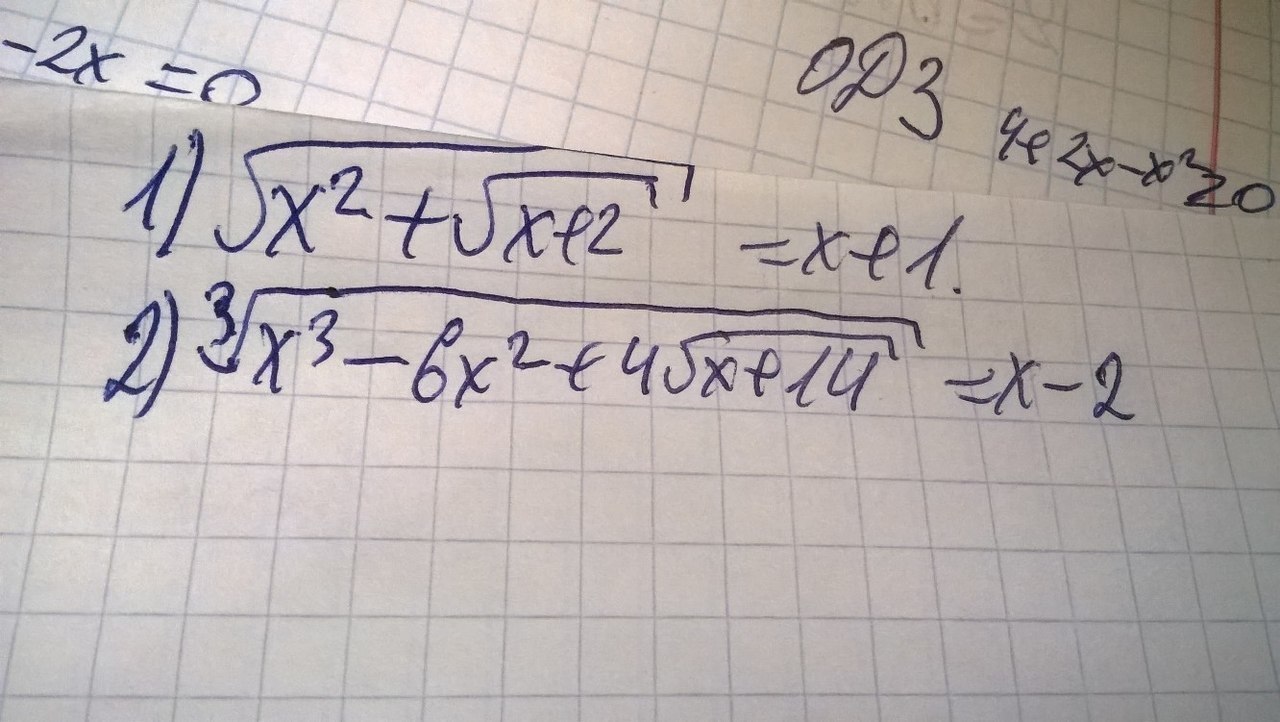 -2x = 0
ОДЗ
4+2x-x²≥0
1) √(x² + √(x+2)) = x+1.
2) ∛(x³ - 6x² + 4√(x+14)) = x - 2